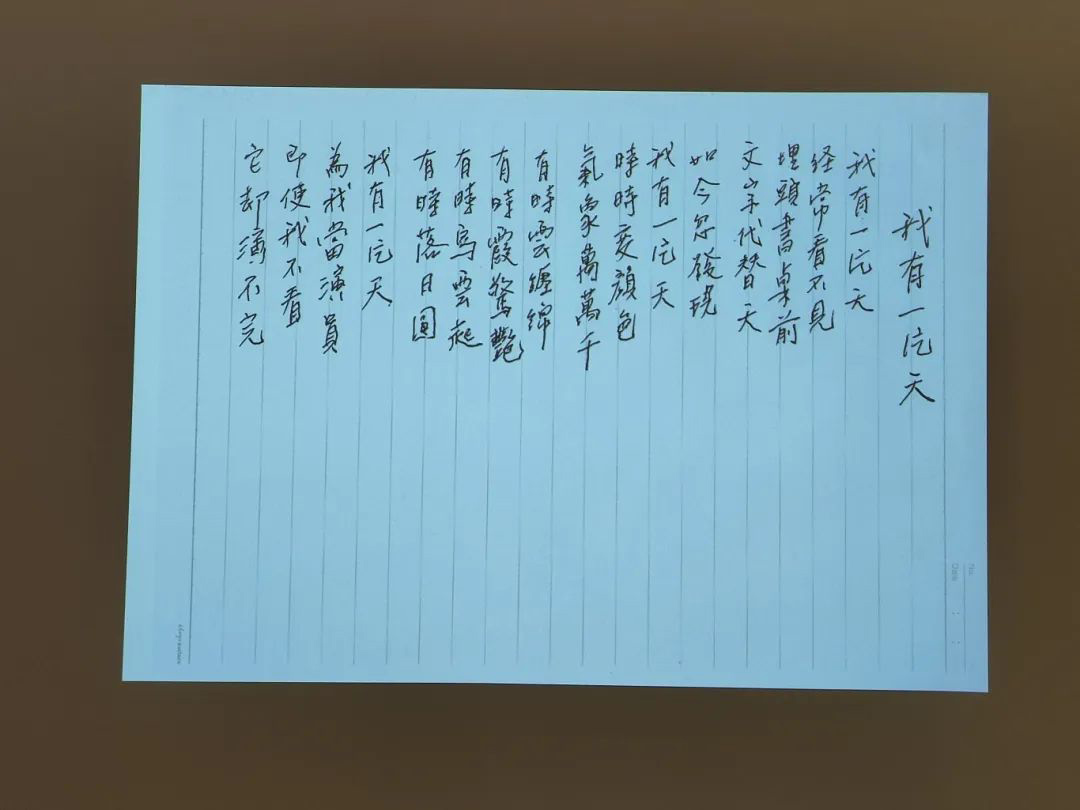 我有一片天
我有一片天
経常看不見
埋頭書桌前
文字代替天
如今忽發現
我有一片天
時時变顏色
氣象萬萬千
有時雲纏綿
有時霞驚艷
有時烏雲起
有時落日圓
我有一片天
為我當演員
即使我不看
它却演不完
No.
Date : :